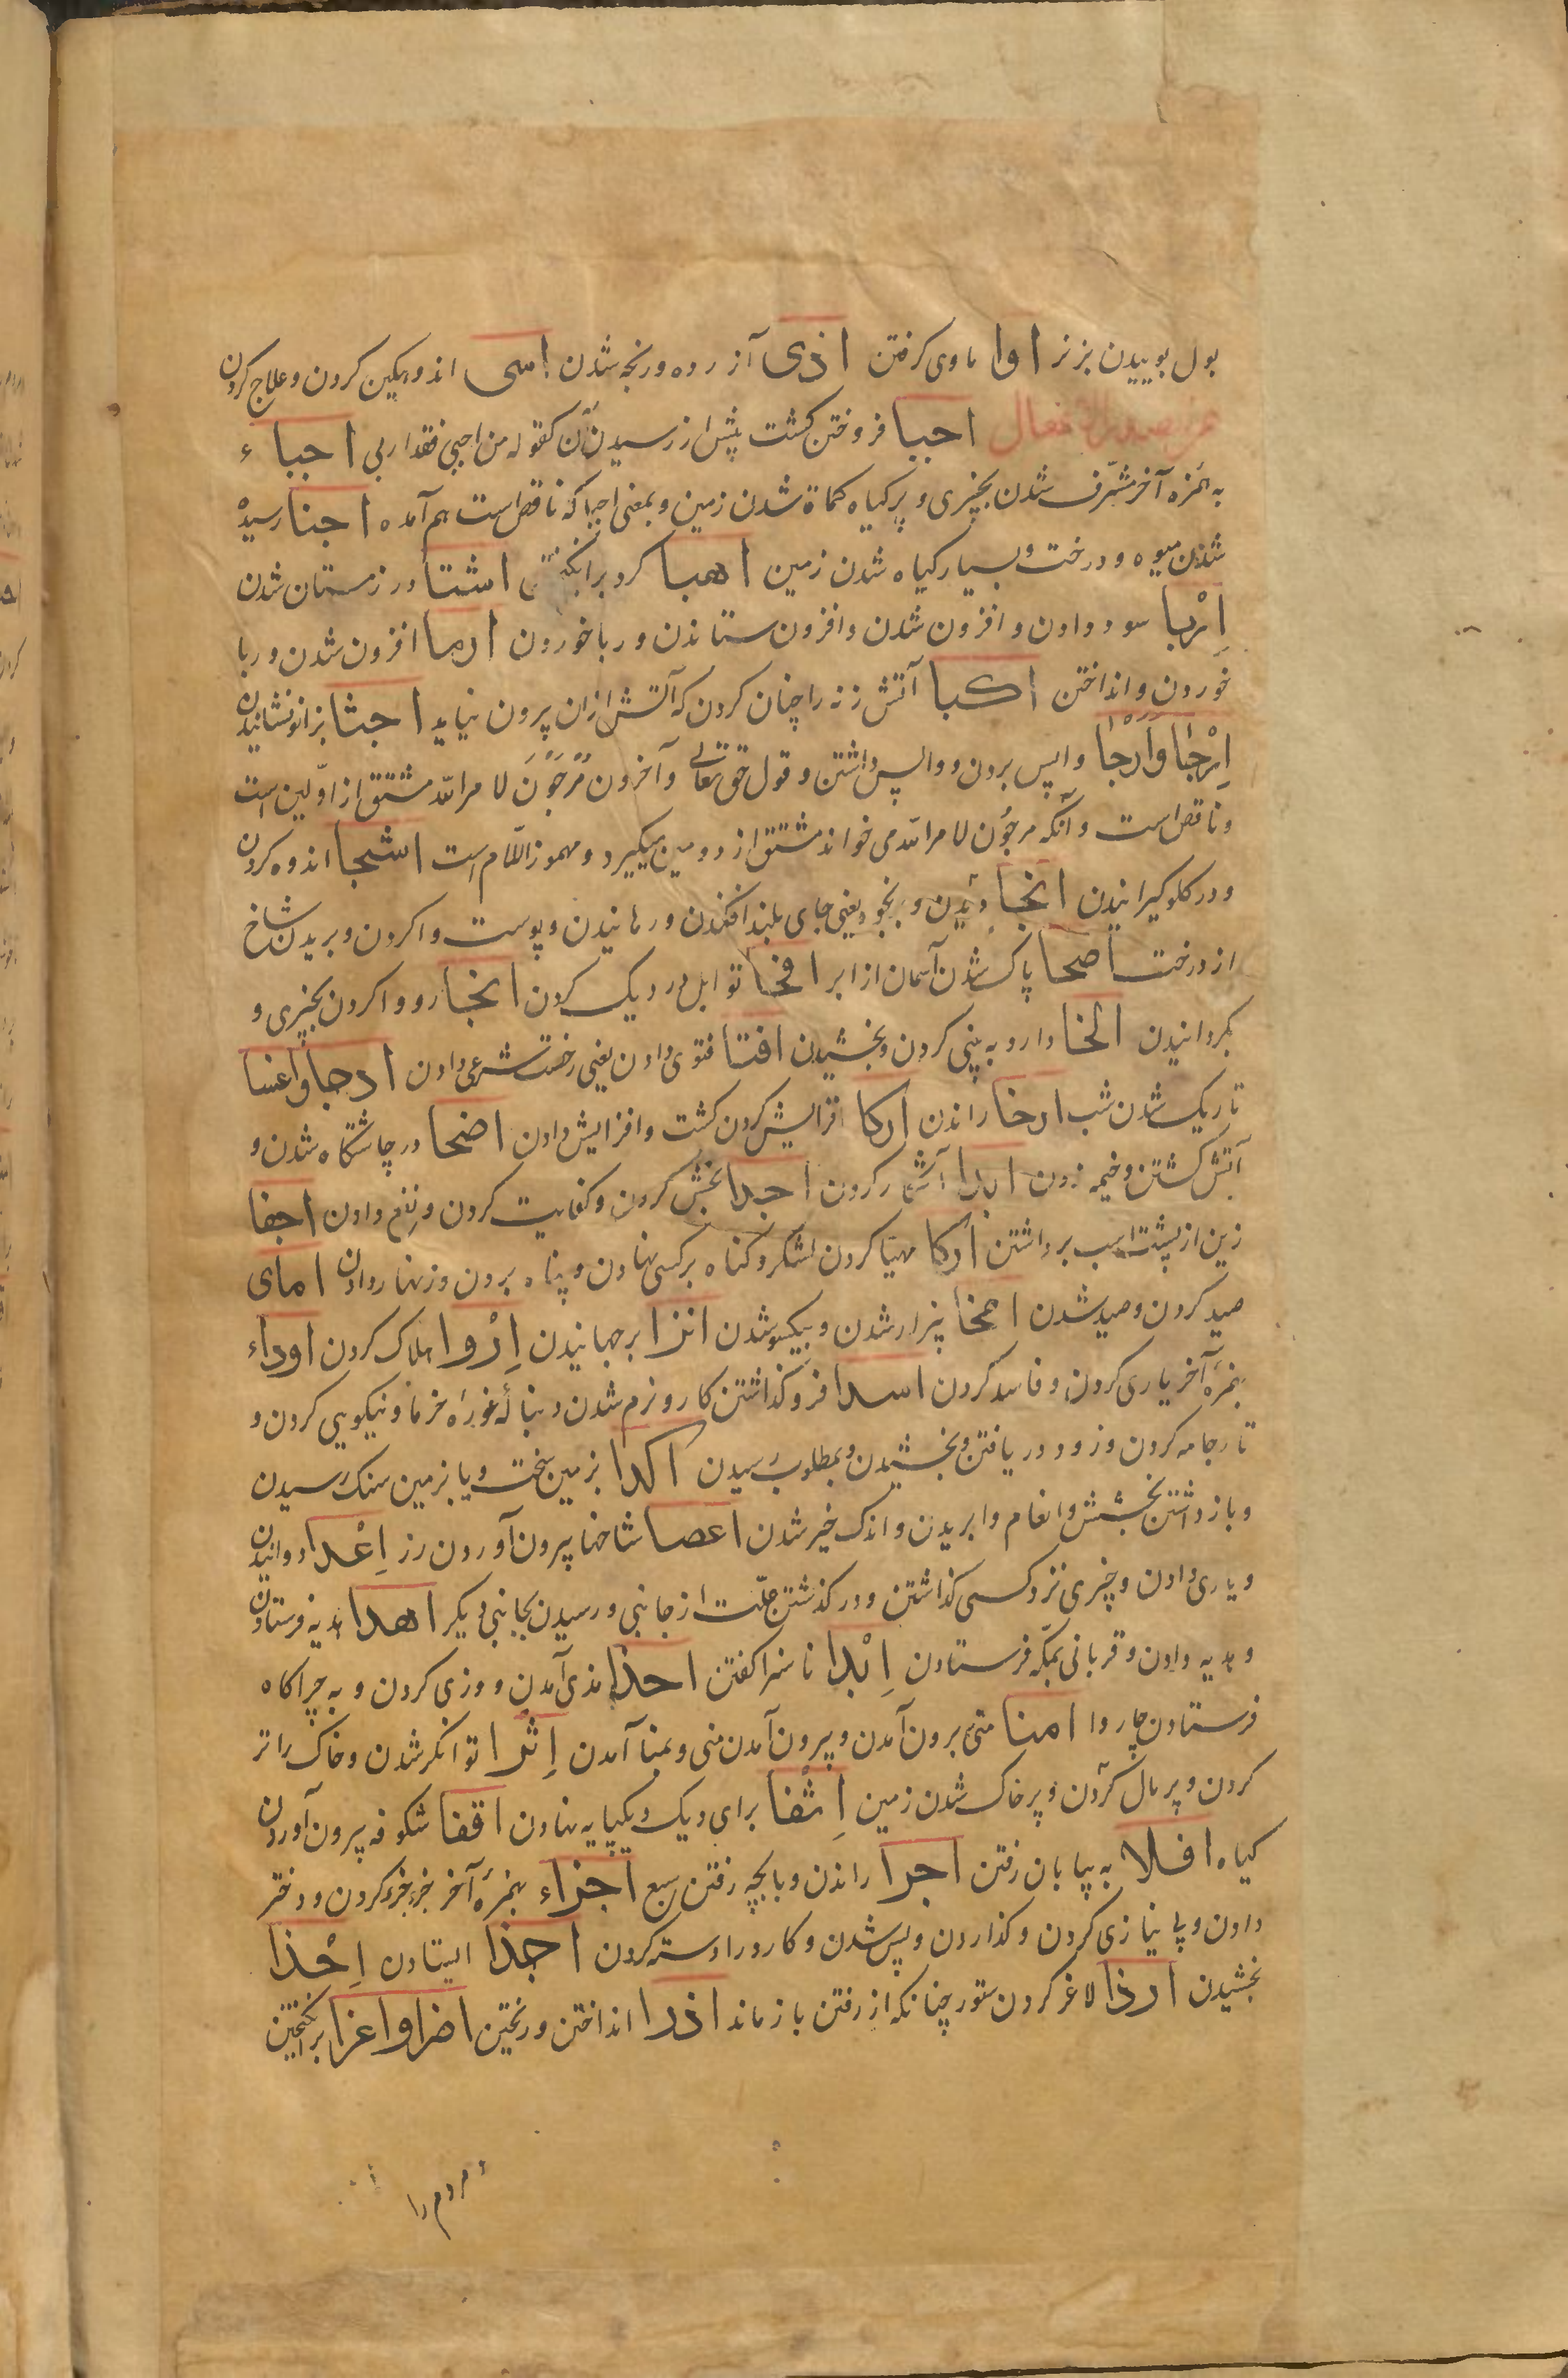 بول بوییدن بز نر اوا ماوی کرفتن اذی آزرده و رنجه شدن اسی اندوهکین کردن و علاج کردن
احبا فروختن کشت پیش از رسیدن آن کقوله من اجبی فقد اربی احباء
به همزه آخر مشرف شدن بچیزی و پر کیاه کماة شدن زمین و بمعنی اجبا که ناقص است هم آمده اجنا رسیده
شدن میوه و درخت و بسیار کیاه شدن زمین اهبا کرد برانکیختن اشتا در زمستان شدن
اِرْبا سود دادن و افزون شدن و افزون ستاندن و ربا خوردن ارما افزون شدن و ربا
خوردن و انداختن اکبا آتش زنه را چنان کردن که آتش از ان بیرون نیاید اجثا بزانو نشانیدن
اِرْجا وَاَرْجا واپس بردن و واپس داشتن و قول حق تعالی وآخرون مُرْجَوْنَ لامرالله مشتق از اولین است
و ناقص است و آنکه مرجؤن لامرالله می خواند مشتق از دومین میکیرد و مهموز اللام است اشجا اندوه کردن
و در کلو کیرانیدن انجا دیدن و بنجود یعنی جای بلند افکندن و رهانیدن و پوست وا کردن و بریدن شاخ
از درخت اصحا پاک شدن آسمان از ابر افحا توابل در دیک کردن انحا رو وا کردن بچیزی و
بکردانیدن الخا دارو به بینی کردن و بخشیدن افتا فتوی دادن یعنی رخصت شرعی دادن ادجا واغسا
تاریک شدن شب ارخا راندن ارکا افزایش کردن کشت و افزایش دادن اضحا در چاشتکاه شدن و
آتش کشتن و خیمه زدن ابدا آشکار کردن اجدا بخش کردن و کفایت کردن و نفع دادن اجفا
زین از پشت اسب برداشتن ارکا مهیا کردن لشکر و کناه برکسی نهادن و پناه بردن و زنهار دادن امای
صید کردن و صید شدن امخا بیزار شدن و بیکسو شدن انزا برجهانیدن اِرْوا هلاک کردن اوداء
بهمزه آخر یاری کردن و فاسد کردن اسدا فرو کذاشتن کار و نرم شدن دنبالهٔ غوره خرما و نیکویی کردن و
تار جامه کردن و زود دریافتن و بخشیدن و بمطلوب رسیدن اکدا بزمین سخت و یا بزمین سنک رسیدن
و باز داشتن بخشش و انعام وابریدن و اندک خیر شدن اعصا شاخها بیرون آوردن رز اِعْدا دوانیدن
و یاری دادن و چیزی نزد کسی کذاشتن و در کذشتن علت از جانبی و رسیدن بجانبی دیکر اهدا هدیه فرستادن
و هدیه دادن و قربانی بمکه فرستادن اِبْذا ناسزا کفتن احذا مذی آمدن و وزی کردن و به چراکاه
فرستادن چاروا امنا منی برون آمدن و بیرون آمدن منی و بمنا آمدن اِثْرا توانکر شدن و خاک را تر
کردن و پر مال کردن و پر خاک شدن زمین اِثْفا برای دیک دیکپایه نهادن اقفا شکوفه بیرون آوردن
کیاه افلا به بیابان رفتن اجرا راندن و با بچه رفتن سبع اجزاء بهمزهٔ آخر جزو جزو کردن و دختر
دادن و بی نیازی کردن و کذاردن و بس شدن و کارد را دسته کردن اجذا ایستادن اِحْذا
بخشیدن ارذا لاغر کردن ستور چنانکه از رفتن باز ماند اذرا انداختن و ریختن اضرا واغرا برانکیختن